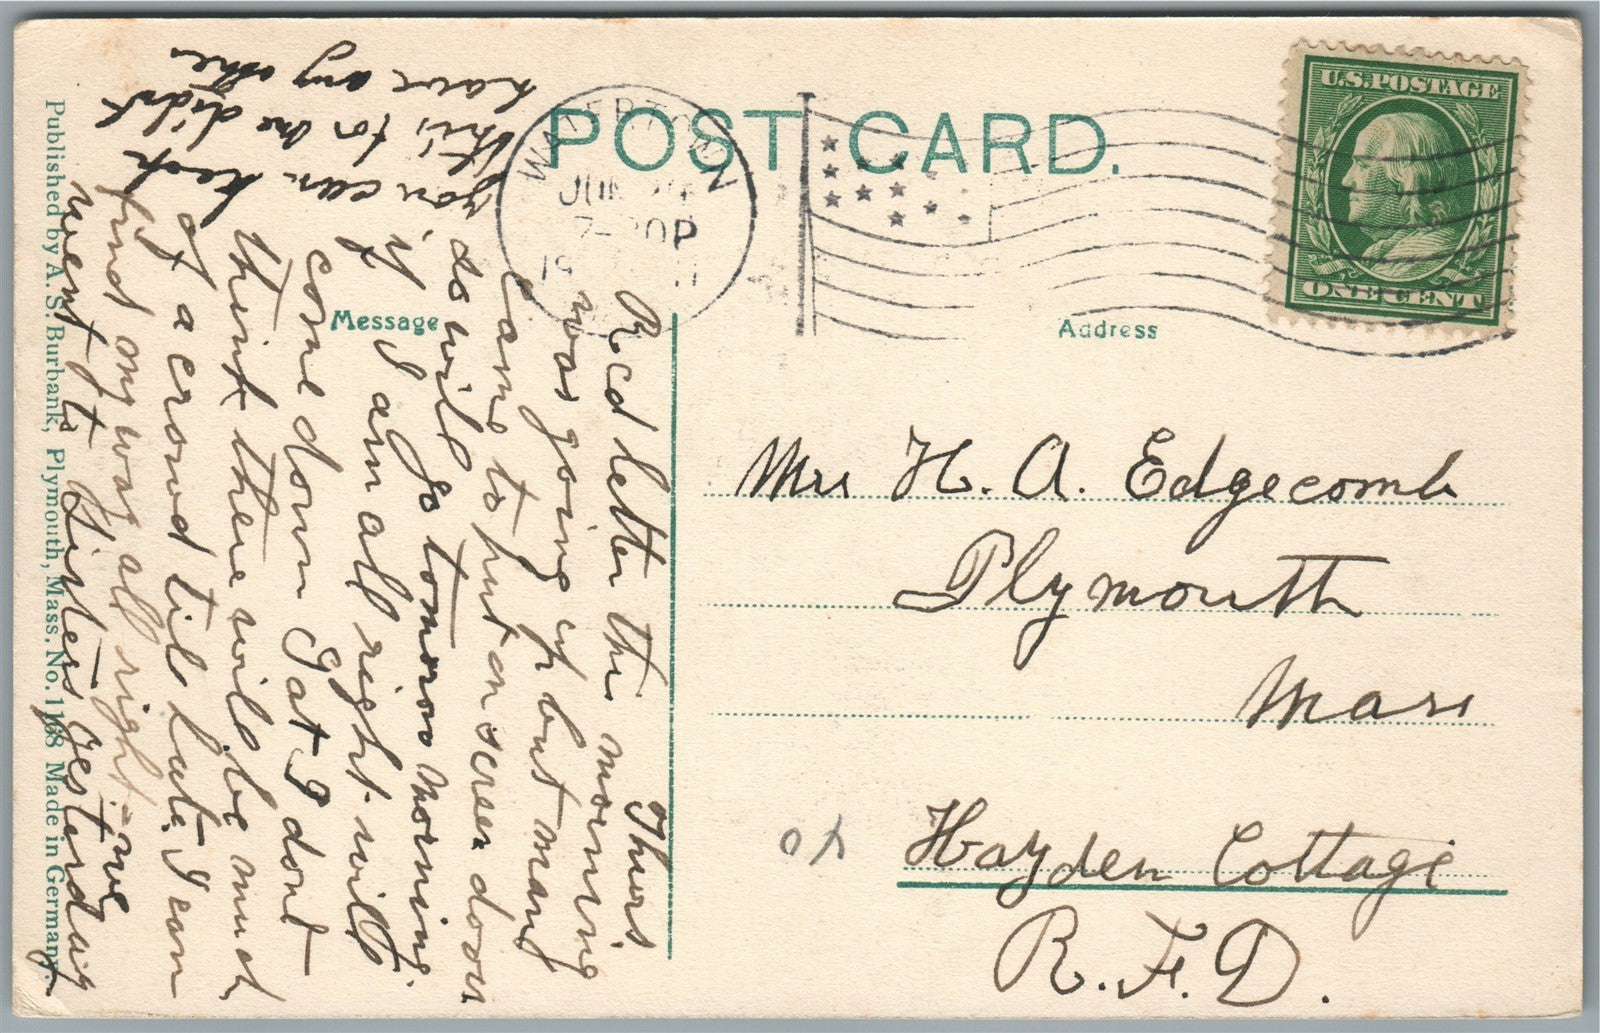 POST CARD.
U.S. POSTAGE
ONE CENT
WATERTOWN
JUN 24
7-30P
19
Message
Address
Thurs
Rcd letter this morning
was going up but many
came to put on screen doors
so will go tomorow morning.
if I am all right. will
come down Sat I dont
think there will be much
of a crowd til late. I can
find my way all right - we
went to yesterday
you can keep
this, for he didnt
have any other
Mrs H. A. Edgecomb
Plymouth
Mass
Hayden Cottage
R. F. D.
Published by A. S. Burbank, Plymouth, Mass. No. 1168 Made in Germany.